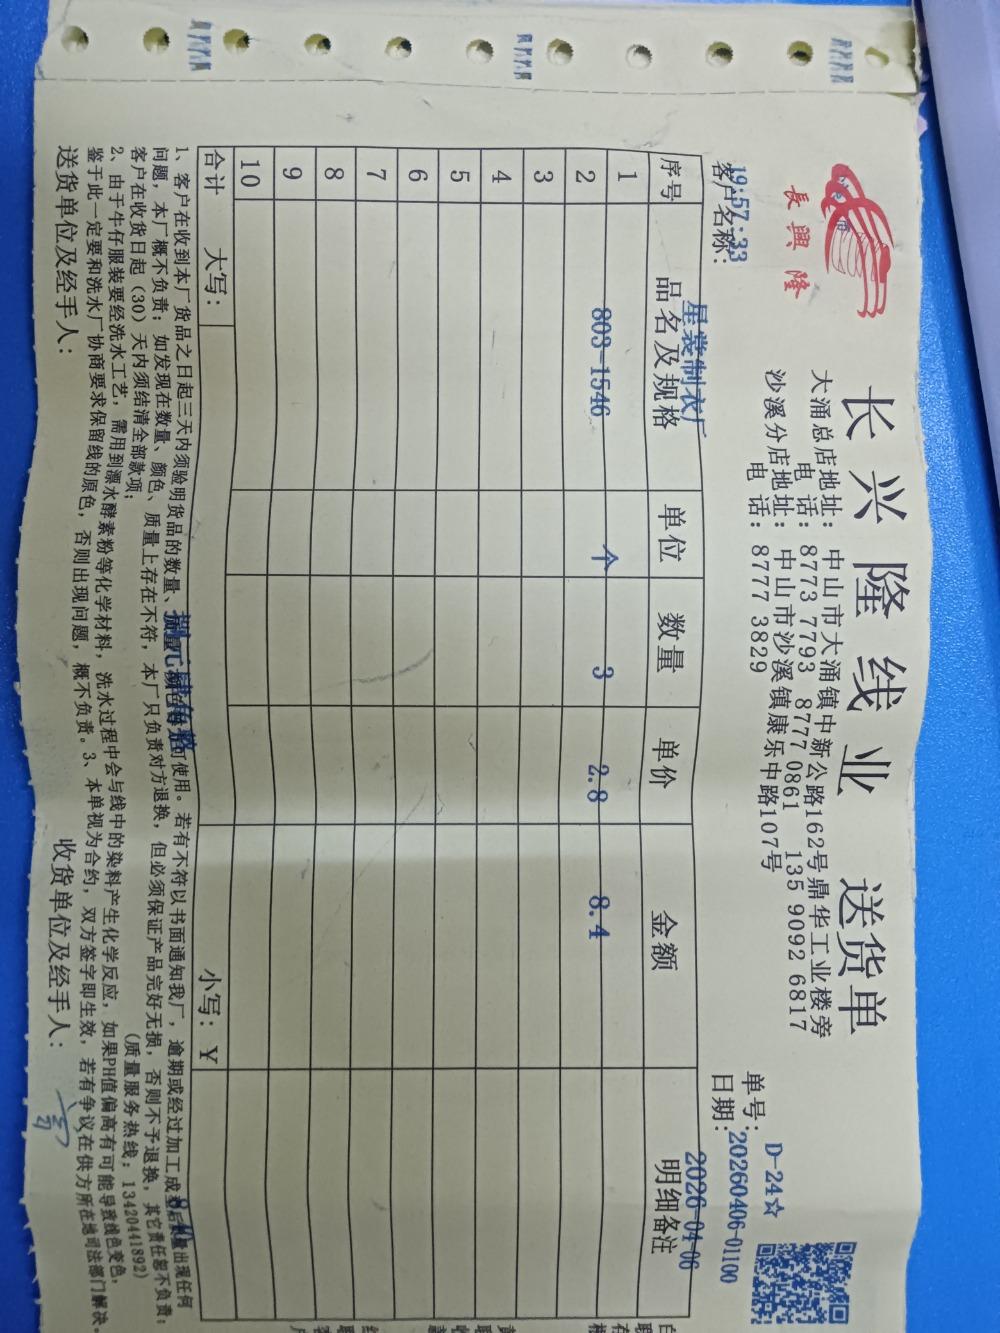 長興隆
长兴隆线业 送货单
大涌总店地址：中山市大涌镇中新公路162号鼎华工业楼旁
电话：8773 7793 8777 0861 135 9092 6817
沙溪分店地址：中山市沙溪镇康乐中路107号
电话：8777 3829
D-24☆
单号：20260406-01100
日期：2026-04-06
19:57:33
客户名称：星裳制衣厂
序号 品名及规格 单位 数量 单价 金额 明细备注
1 803-1546 个 3 2.8 8.4
2
3
4
5
6
7
8
9
10
合计 大写：捌元肆角整 小写：¥
1、客户在收到本厂货品之日起三天内须验明货品的数量、质量、颜色后方可使用。若有不符以书面通知我厂，逾期或经过加工成衣后质量出现任何
问题，本厂概不负责；如发现在数量、颜色、质量上存在不符，本厂只负责对方退换，但必须保证产品完好无损，否则不予退换，其它责任恕不负责；
客户在收货日起（30）天内须结清全部款项； （质量服务热线：13420441892）
2、由于牛仔服装要经洗水工艺，需用到漂水酵素粉等化学材料，洗水过程中会与线中的染料产生化学反应，如果PH值偏高有可能导致线色变色，
鉴于此一定要和洗水厂协商要求保留线的原色，否则出现问题，概不负责。3、本单视为合约，双方签字即生效，若有争议在供方所在地司法部门解决。
送货单位及经手人： 收货单位及经手人：